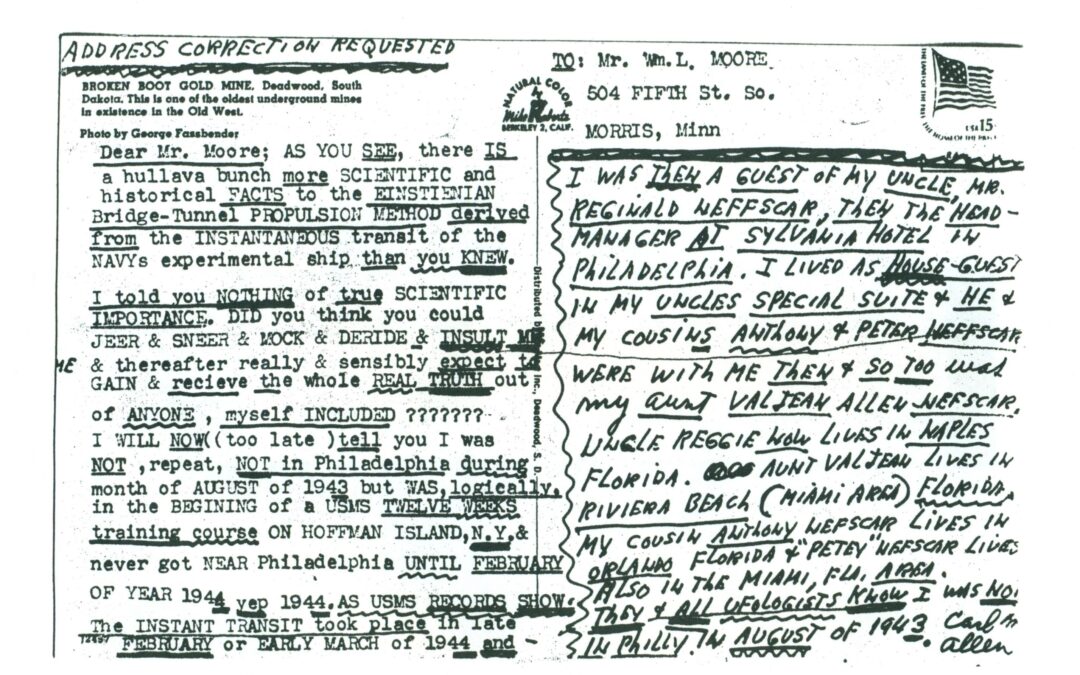 ADDRESS CORRECTION REQUESTED
BROKEN BOOT GOLD MINE, Deadwood, South
Dakota. This is one of the oldest underground mines
in existence in the Old West.
Photo by George Fassbender
Dear Mr. Moore; AS YOU SEE, there IS
a hullava bunch more SCIENTIFIC and
historical FACTS to the EINSTIENIAN
Bridge-Tunnel PROPULSION METHOD derived
from the INSTANTANEOUS transit of the
NAVYs experimental ship than you KNEW.
I told you NOTHING of true SCIENTIFIC
IMPORTANCE. DID you think you could
JEER & SNEER & MOCK & DERIDE & INSULT ME
ME & thereafter really & sensibly expect to
GAIN & recieve the whole REAL TRUTH out
of ANYONE , myself INCLUDED ???????
I WILL NOW((too late )tell you I was
NOT ,repeat, NOT in Philadelphia during
month of AUGUST of 1943 but WAS,logically,
in the BEGINING of a USMS TWELVE WEEKS
training course ON HOFFMAN ISLAND,N.Y.&
never got NEAR Philadelphia UNTIL FEBRUARY
OF YEAR 1944 yep 1944.AS USMS RECORDS SHOW.
The INSTANT TRANSIT took place in late
FEBRUARY or EARLY MARCH of 1944 and -
12497
NATURAL COLOR
by
Mike Roberts
BERKELEY 2, CALIF.
Distributed by Inc., Deadwood, S. D.
TO: Mr. Wm.L. MOORE
504 FIFTH St. So.
MORRIS, Minn
USA 15
I WAS THEN A GUEST OF MY UNCLE, MR.
REGINALD NEFFSCAR, THEN THE HEAD-
MANAGER AT SYLVANIA HOTEL IN
PHILADELPHIA. I LIVED AS HOUSE-GUEST
IN MY UNCLES SPECIAL SUITE & HE &
MY COUSINS ANTHONY & PETER NEFFSCAR
WERE WITH ME THEN & SO TOO was
my aunt VALJEAN ALLEN NEFSCAR.
UNCLE REGGIE NOW LIVES IN NAPLES
FLORIDA. AUNT VALJEAN LIVES IN
RIVIERA BEACH (MIAMI AREA) FLORIDA.
MY COUSIN ANTHONY NEFSCAR LIVES IN
ORLANDO FLORIDA & "PETEY" NEFSCAR LIVES
ALSO IN THE MIAMI, FLA. AREA.
THEY & ALL UFOLOGISTS KNOW I WAS NOT
IN PHILLY IN AUGUST OF 1943. Carl M
allen